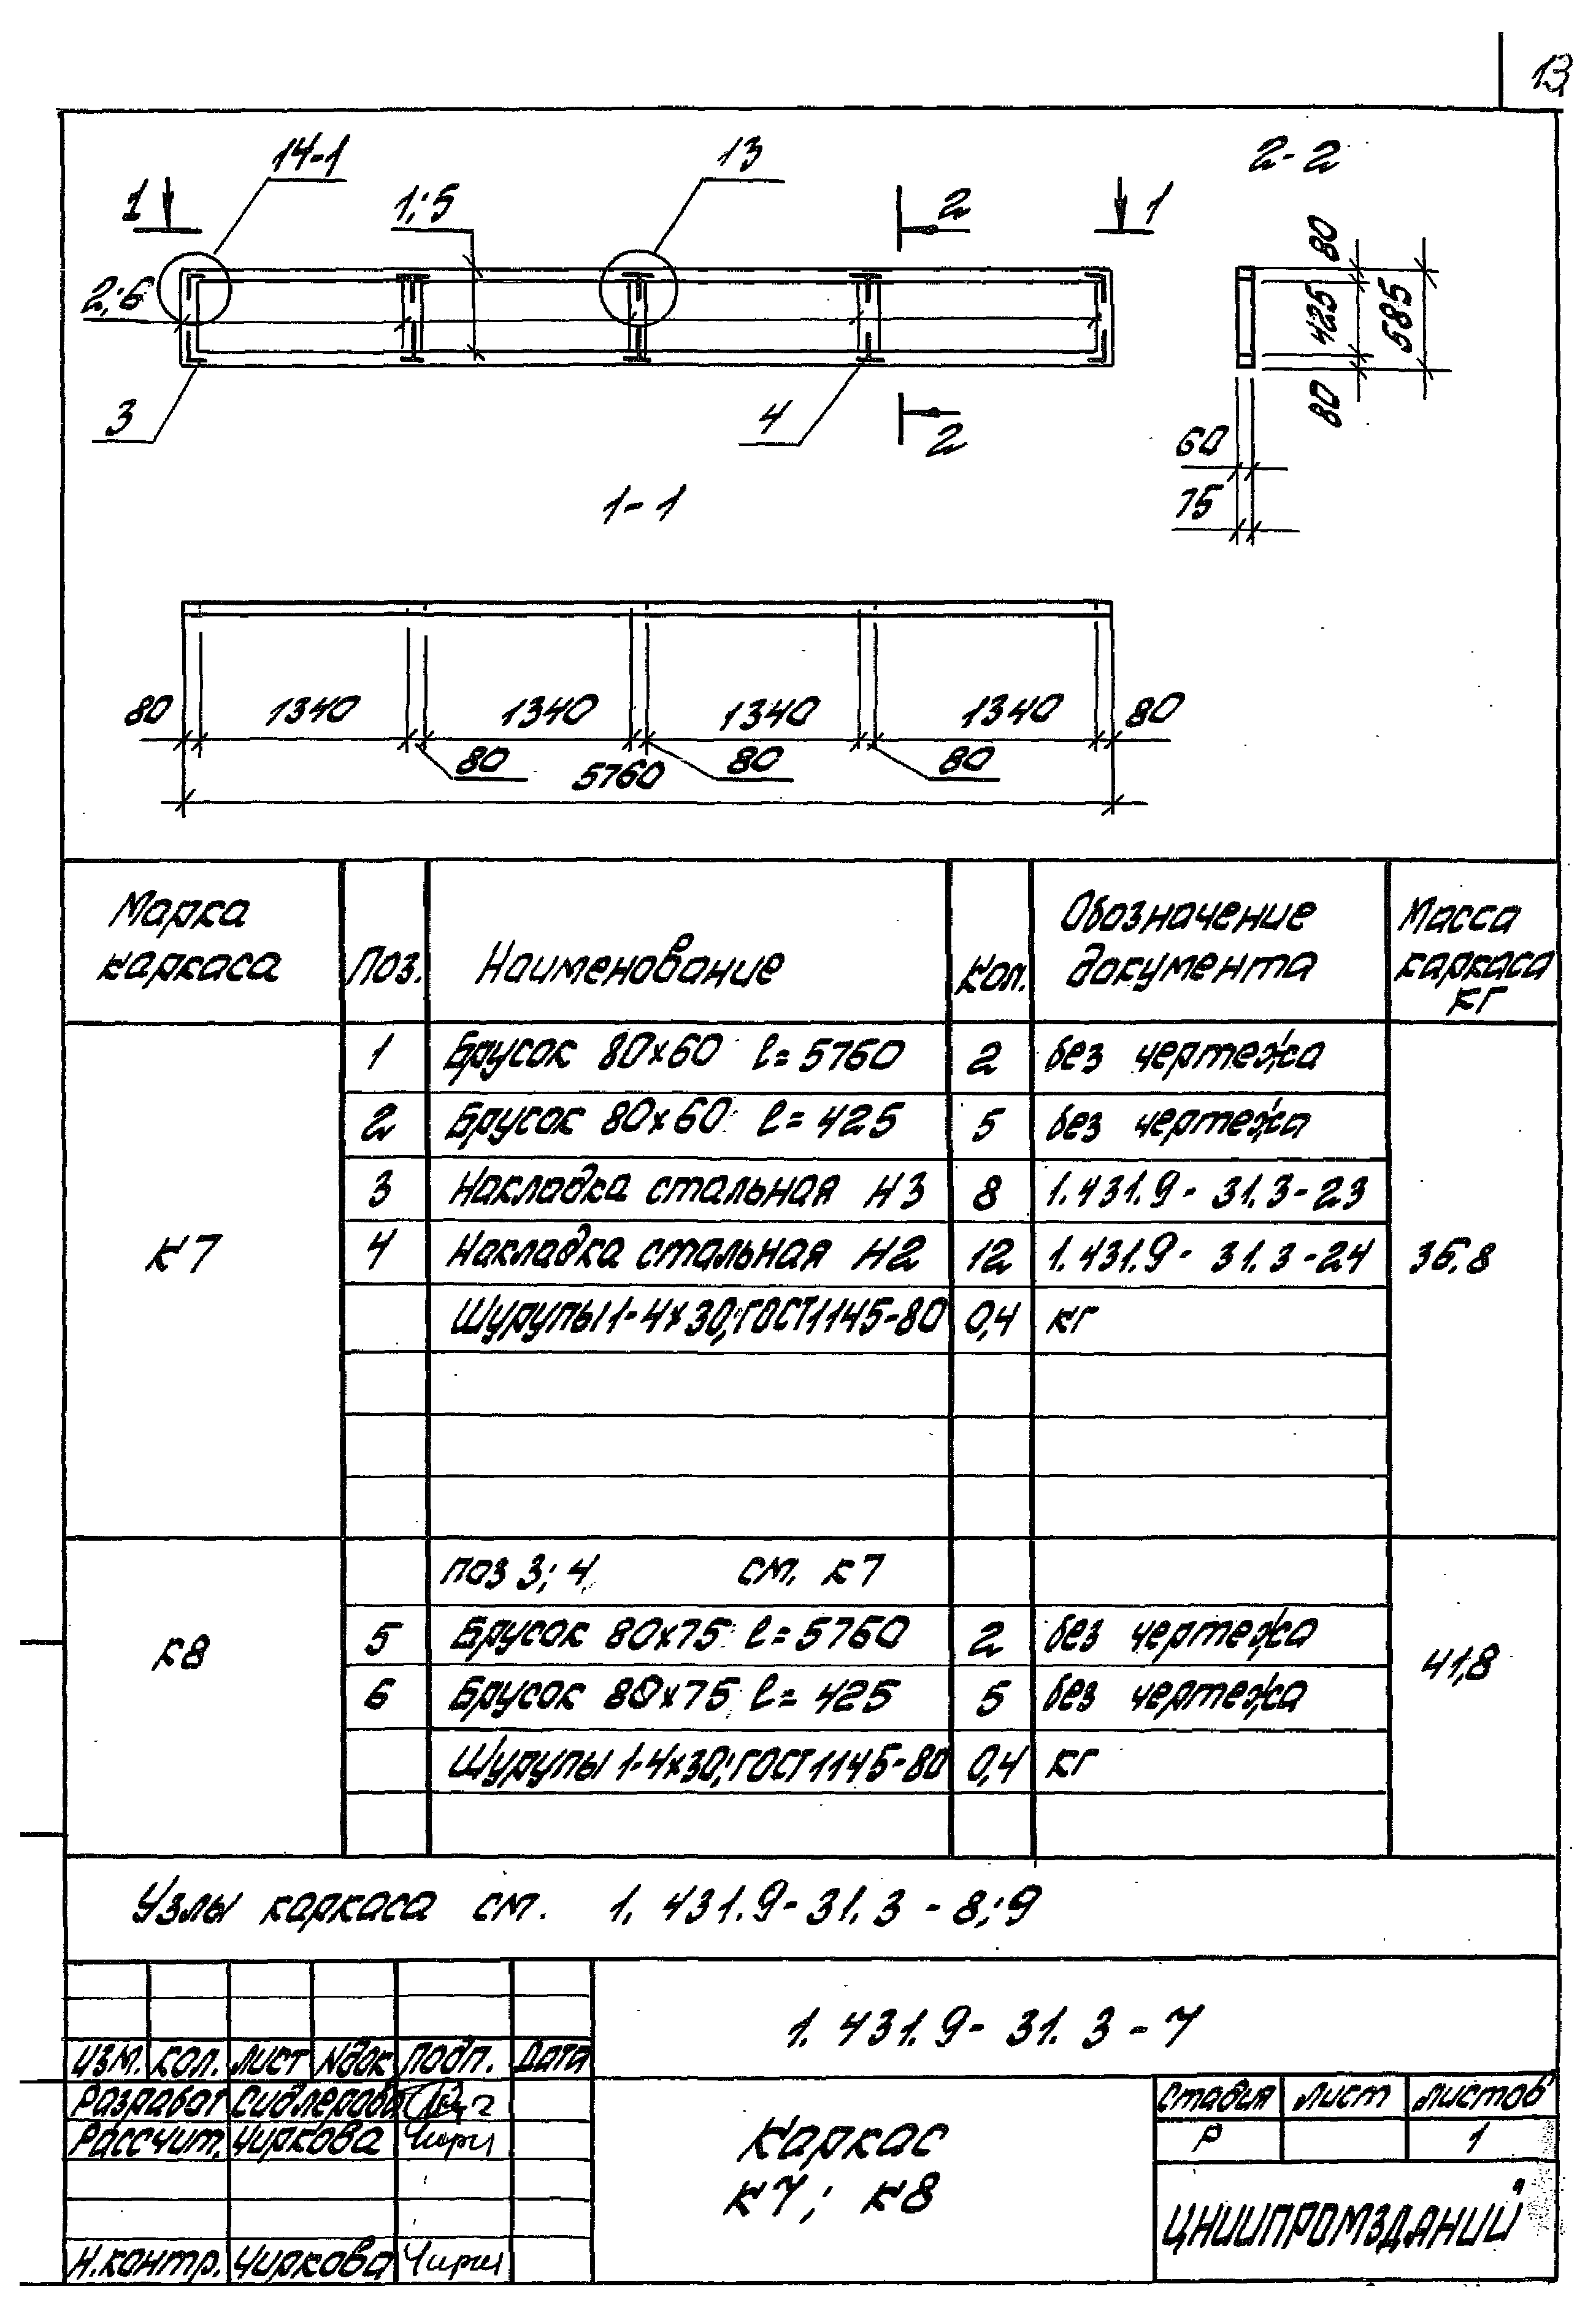 13
14-1
13
2-2
1
1;5
2
1
2;6
3
4
2
80
425
585
80
60
75
1-1
80
1340
1340
1340
1340
80
80
80
80
5760
Марка каркаса
Поз.
Наименование
Кол.
Обозначение документа
Масса каркаса кг
К7
1 Брусок 80х60 l=5760 2 без чертежа
2 Брусок 80х60 l=425 5 без чертежа
3 Накладка стальная Н3 8 1.431.9-31.3-23
4 Накладка стальная Н2 12 1.431.9-31.3-24
36.8
Шурупы 1-4х30; ГОСТ 1145-80 0,4 кг
К8
поз 3; 4 см. К7
5 Брусок 80х75 l=5760 2 без чертежа
41,8
6 Брусок 80х75 l=425 5 без чертежа
Шурупы 1-4х30; ГОСТ 1145-80 0,4 кг
Узлы каркаса см. 1.431.9-31.3-8;9
1.431.9-31.3-7
Изм. Кол. Лист Nдок Подп. Дата
Разработ. Сидлерова
Рассчит. Чиркова Чирк
Н.контр. Чиркова Чирк
Каркас
К7; К8
Стадия Лист Листов
Р 1
ЦНИИПРОМЗДАНИЙ